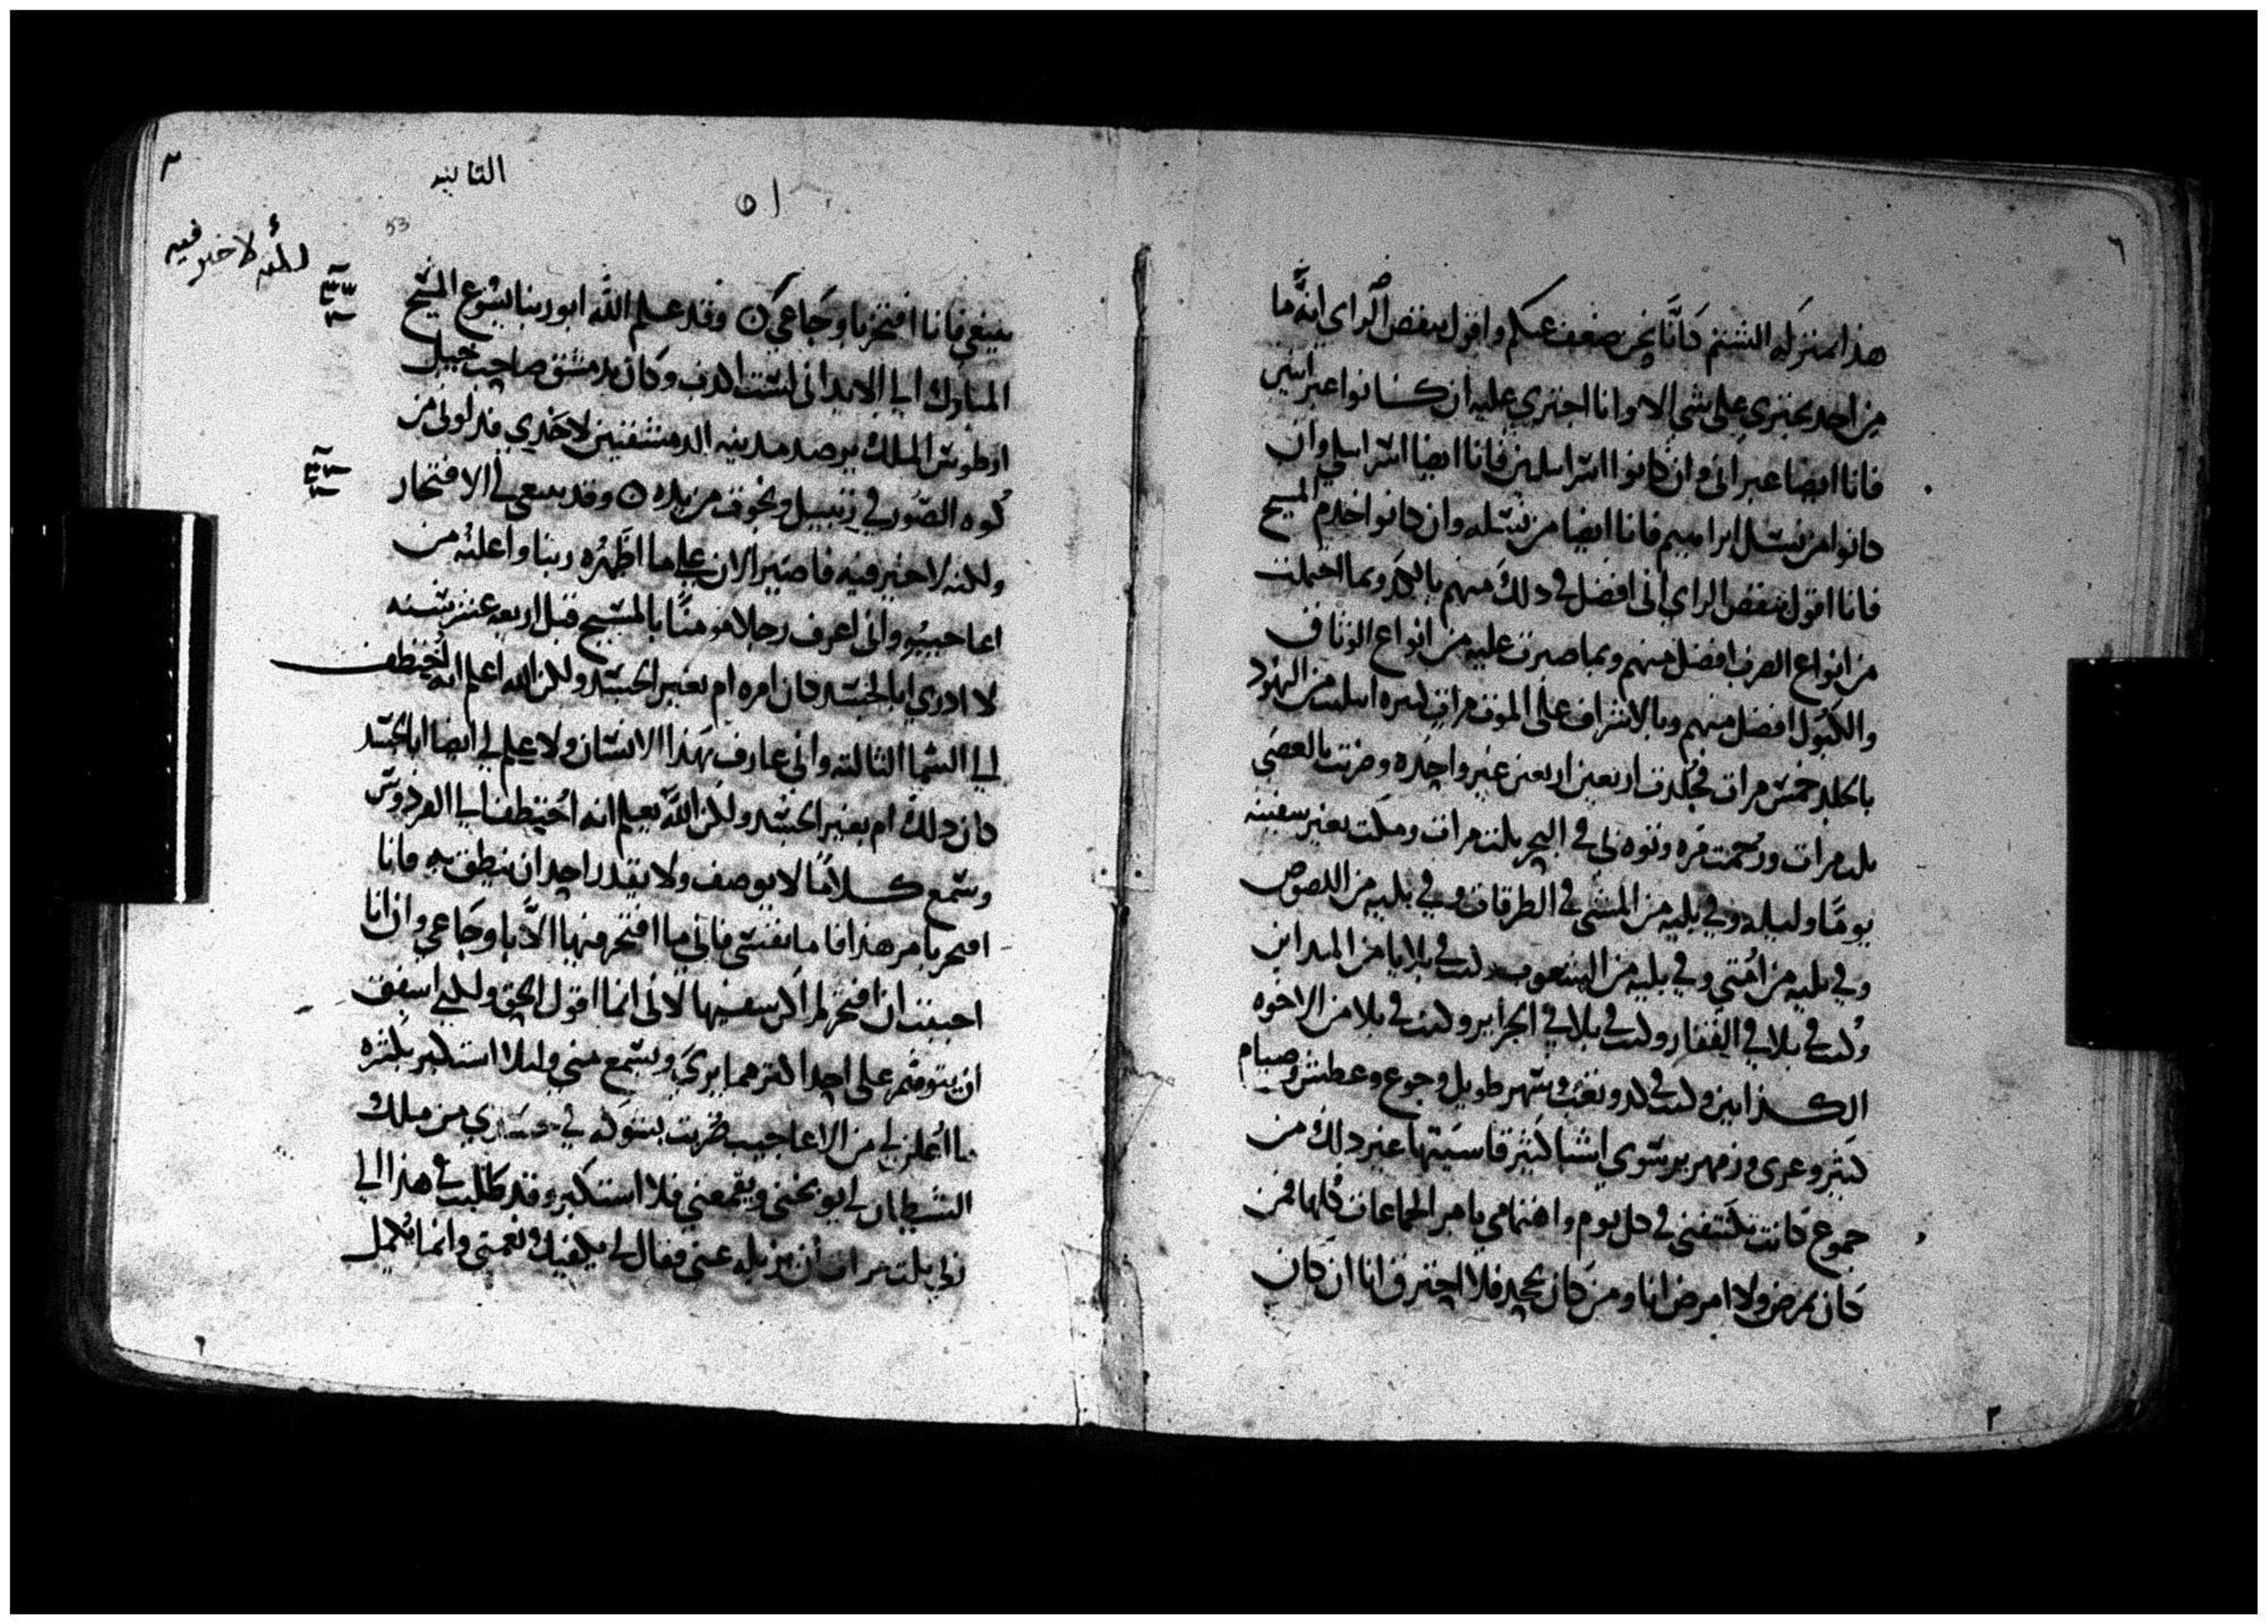 هذا بمنزله الشتم كانّا نحن ضعف عنكم واقول بنقص الراي انه ما
من احد يجتري على شي الا وانا اجتري عليه ان كانوا عبرانيين
فانا ايضا عبراني وان كانوا اسراسلين فانا ايضا اسراسلي وان
كانوا من نسل ابراهيم فانا ايضا من نسله وان كانوا خدم المسيح
فانا اقول بنقص الراي اني افضل في ذلك منهم بالكد وبما احتملت
من انواع الضرب افضل منهم وبما صبرت عليه من انواع الوثاق
والكبول افضل منهم وبالاشراف على الموت مرات كثيره من اليهود
بالجلد خمس مرات فجلدت اربعين اربعين غير واحده وضربت بالعصى
ثلث مرات ورجمت مره في البحر ثلث مرات ومكثت بغير سفينه
يومًا وليله وفي بليه من المشي في الطرقات وفي بليه من اللصوص
وفي بليه من امتي وفي بليه من الشعوب كنت في بلايا من المداين
وكنت في بلا في القفار وكنت في بلا في الجزاير وكنت في بلا من الاخوه
الكذابين وكنت في كد وتعب وسهر طويل وجوع وعطش وصيام
كثير وعرى وزمهرير سوي اشيا كثير قاسيتها غير ذلك من
جموع كانت تكتنفني في كل يوم واهتمامي بامر الجماعات كلها فمن
كان يمرض ولا امرض انا ومن كان يجحد فلا احترق انا ان كان
٣
التانيه
٥١
53
ولكنه لا خير فيه
ينبغي فانا افتخر باوجاعي ٥ وقد علم الله ابو ربنا يسوع المسيح
المبارك الى الابد اني لست اكذب وكان بدمشق صاحب خيل
ارطوس الملك يرصد مدينه الدمشقيين لاخذي فدلوني من
كوه السور في زنبيل ونجوت من يده ٥ وقد ينبغي لي الافتخار
ولكنه لا خير فيه فاصير الان على ما اظهره ربنا واعلنه من
اعاجيبه واني اعرف رجلا مومنًا بالمسيح قبل اربعه عشر سنه
لا ادري ابالجسد كان امره ام بغير الجسد ولكن الله اعلم انه اختطف
الى السما الثالثه واني عارف بهذا الانسان ولا علم لي ايضا ابالجسد
كان ذلك ام بغير الجسد ولكن الله يعلم انه اختطف الى الفردوس
وسمع كلامًا لا يوصف ولا يقدر احد ان ينطق به فانا
افتخر بامر هذا فاما نفسي فاني ما افتخر فيها الا باوجاعي وان انا
احببت ان افتخر لم اكن سفيها لاني انما اقول الحق ولكني اشفق
ان يتوهم على احد اكثر مما يرى ويسمع مني وليلا استكبر بكثره
ما اعلن لي من الاعاجيب ضربت بشوكه في جسدي من ملك
الشيطان ليوبخني ويقمعني فلا استكبر وقد طلبت في هذا الى
ربي ثلث مرات ان يزيله عني فقال لي يكفيك نعمتي وانما يكمل